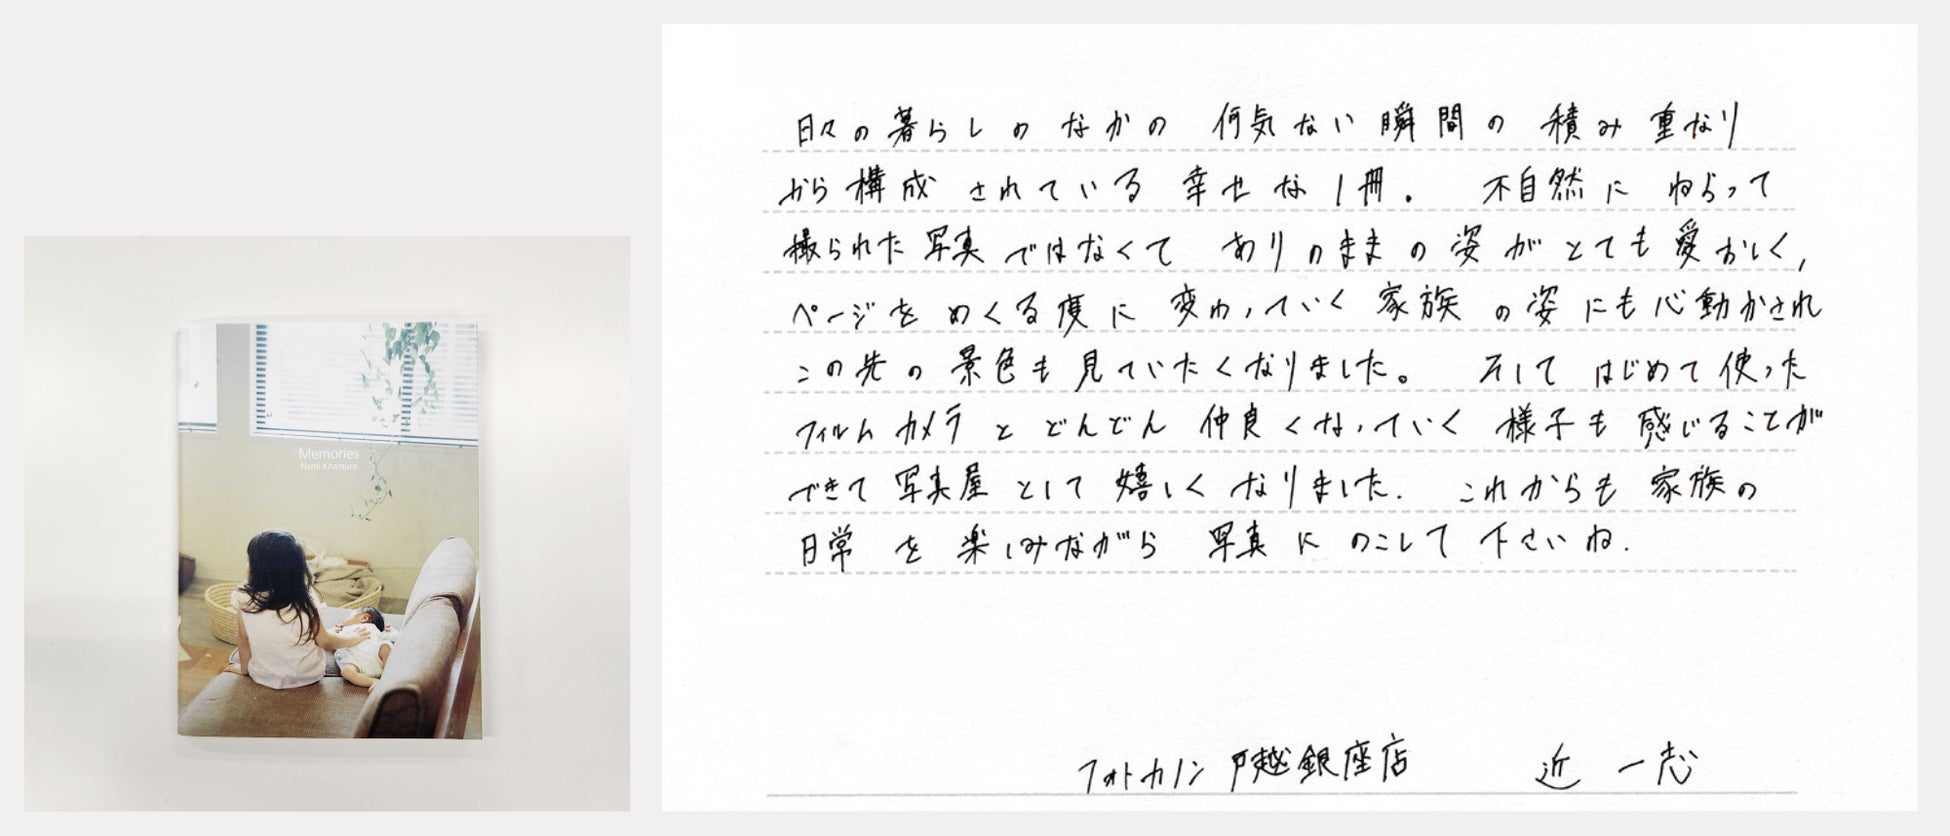 Memories
Nami Kitamura
日々の暮らしのなかの 何気ない瞬間の 積み重なり
から構成 されている 幸せな1冊。 不自然に ねらって
撮られた写真ではなくて ありのままの姿がとても愛おしく,
ページをめくる度に 変わっていく 家族の姿にも心動かされ
この先の景色も見ていたくなりました。 そしてはじめて使った
フィルムカメラとどんどん仲良くなっていく 様子も感じることが
できて写真屋として嬉しくなりました. これからも家族の
日常を楽しみながら 写真にのこして下さいね.
フォトカノン戸越銀座店 近 一志